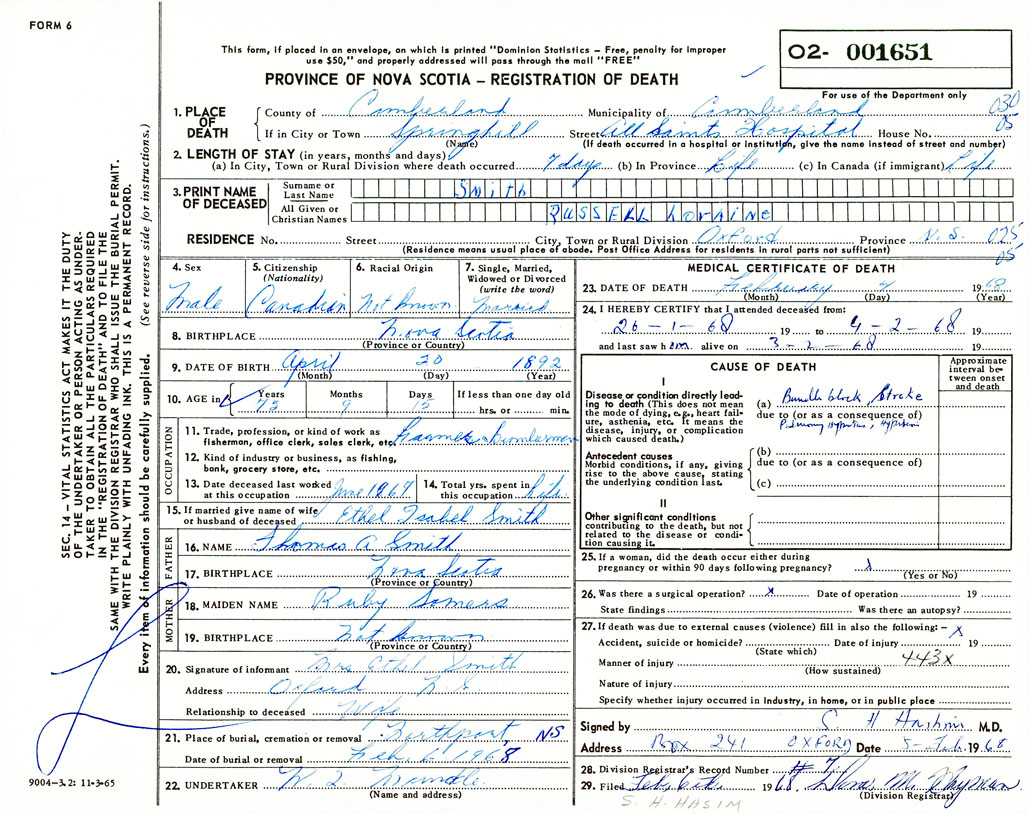 FORM 6
This form, if placed in an envelope, on which is printed "Dominion Statistics – Free, penalty for improper
use $50," and properly addressed will pass through the mail "FREE"
PROVINCE OF NOVA SCOTIA – REGISTRATION OF DEATH
O2- 001651
For use of the Department only
1. PLACE OF DEATH
County of Cumberland Municipality of Cumberland 030
If in City or Town Springhill Street All Saints Hospital House No. 05
(Name) (If death occurred in a hospital or institution, give the name instead of street and number)
2. LENGTH OF STAY (in years, months and days)
(a) In City, Town or Rural Division where death occurred 7 days (b) In Province Life (c) In Canada (if immigrant) Life
3. PRINT NAME OF DECEASED
Surname or Last Name Smith
All Given or Christian Names RUSSELL LORAINE
RESIDENCE No. Street City, Town or Rural Division Oxford Province N.S. 025
(Residence means usual place of abode. Post Office Address for residents in rural parts not sufficient) 05
4. Sex Male
5. Citizenship (Nationality) Canadian
6. Racial Origin Not Known
7. Single, Married, Widowed or Divorced (write the word) Married
8. BIRTHPLACE Nova Scotia
(Province or Country)
9. DATE OF BIRTH April 20 1892
(Month) (Day) (Year)
10. AGE in Years 75 Months 9 Days 15 If less than one day old hrs. or min.
OCCUPATION
11. Trade, profession, or kind of work as
fisherman, office clerk, sales clerk, etc. Farmer & Lumberman
12. Kind of industry or business, as fishing,
bank, grocery store, etc.
13. Date deceased last worked at this occupation June 1967
14. Total yrs. spent in this occupation Life
15. If married give name of wife
or husband of deceased Ethel Isabel Smith
FATHER
16. NAME Thomas A Smith
17. BIRTHPLACE Nova Scotia
(Province or Country)
MOTHER
18. MAIDEN NAME Ruby Somers
19. BIRTHPLACE Not Known
(Province or Country)
20. Signature of informant Mrs Ethel Smith
Address Oxford N.S.
Relationship to deceased Wife
21. Place of burial, cremation or removal Northport, NS
Date of burial or removal Feb. 6 1968
22. UNDERTAKER W.
(Name and address)
MEDICAL CERTIFICATE OF DEATH
23. DATE OF DEATH February 4 1968
(Month) (Day) (Year)
24. I HEREBY CERTIFY that I attended deceased from:
26-1-68 19 to 4-2-68 19
and last saw him alive on 3-2-68 19
CAUSE OF DEATH
Approximate interval between onset and death
I
Disease or condition directly leading to death (This does not mean the mode of dying, e.g., heart failure, asthenia, etc. It means the disease, injury, or complication which caused death.)
(a) Bundle block, Stroke
due to (or as a consequence of)
Antecedent causes
Morbid conditions, if any, giving rise to the above cause, stating the underlying condition last.
(b)
due to (or as a consequence of)
(c)
II
Other significant conditions
contributing to the death, but not related to the disease or condition causing it.
25. If a woman, did the death occur either during
pregnancy or within 90 days following pregnancy? x
(Yes or No)
26. Was there a surgical operation? x Date of operation 19
State findings Was there an autopsy?
27. If death was due to external causes (violence) fill in also the following: – x
Accident, suicide or homicide? Date of injury 19
(State which)
Manner of injury 443x
(How sustained)
Nature of injury
Specify whether injury occurred in industry, in home, or in public place
Signed by S H Hashim M.D.
Address Box 241 OXFORD Date 5-Feb. 1968
28. Division Registrar's Record Number # 7
29. Filed Feb. 6th 1968. M. Wayman
(Division Registrar)
S. H. HASIM
SEC. 14 – VITAL STATISTICS ACT MAKES IT THE DUTY
OF THE UNDERTAKER OR PERSON ACTING AS UNDER-
TAKER TO OBTAIN ALL THE PARTICULARS REQUIRED
IN THE "REGISTRATION OF DEATH" AND TO FILE THE
SAME WITH THE DIVISION REGISTRAR WHO SHALL ISSUE THE BURIAL PERMIT.
WRITE PLAINLY WITH UNFADING INK. THIS IS A PERMANENT RECORD.
Every item of information should be carefully supplied. (See reverse side for instructions.)
9004–3.2: 11-3-65